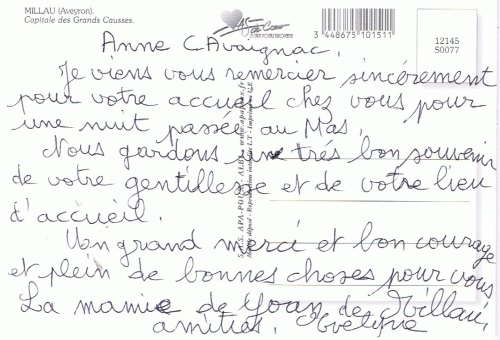 MILLAU (Aveyron).
Capitale des Grands Causses.
3 448675 101511
12145
S0077
Anne CAvaignac.
Je viens vous remercier sincèrement
pour votre accueil chez vous pour
une nuit passée au Mas.
Nous gardons un très bon souvenir
de votre gentillesse et de votre lieu
d'accueil.
Un grand merci et bon courage
et plein de bonnes choses pour vous
La mamie de Yoan de Millau,
amitiés. Evelyne